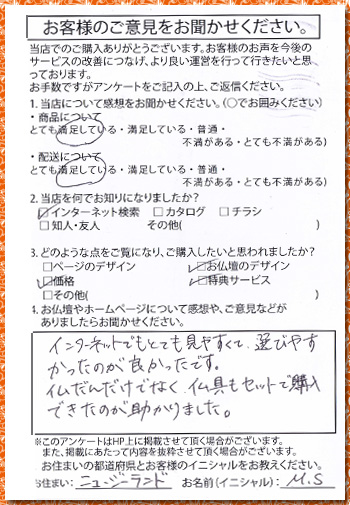 お客様のご意見をお聞かせください。
当店でのご購入ありがとうございます。お客様のお声を今後の
サービスの改善につなげ、より良い運営を行って行きたいと思
っております。
お手数ですがアンケートをご記入の上、ご返信ください。
1. 当店について感想をお聞かせください。(〇でお囲みください)
・商品について
とても満足している・満足している・普通・
不満がある・とても不満がある)
・配送について
とても満足している・満足している・普通・
不満がある・とても不満がある)
2. 当店を何でお知りになりましたか?
☑インターネット検索 □カタログ □チラシ
□知人・友人 その他( )
3. どのような点をご覧になり、ご購入したいと思われましたか?
□ページのデザイン ☑お仏壇のデザイン
☑価格 ☑特典サービス
□その他( )
4. お仏壇やホームページについて感想や、ご意見などが
ありましたらお聞かせください。
インターネットでもとても見やすくて、選びやす
かったのが良かったです。
仏だんだけでなく、仏具もセットで購入
できたのが助かりました。
※このアンケートはHP上に掲載させて頂く場合がございます。
また、掲載にあたって内容を抜粋させて頂く場合がございます。
お住まいの都道府県とお客様のイニシャルをお教えください。
お住まい: ニュージーランド お名前(イニシャル): M.S